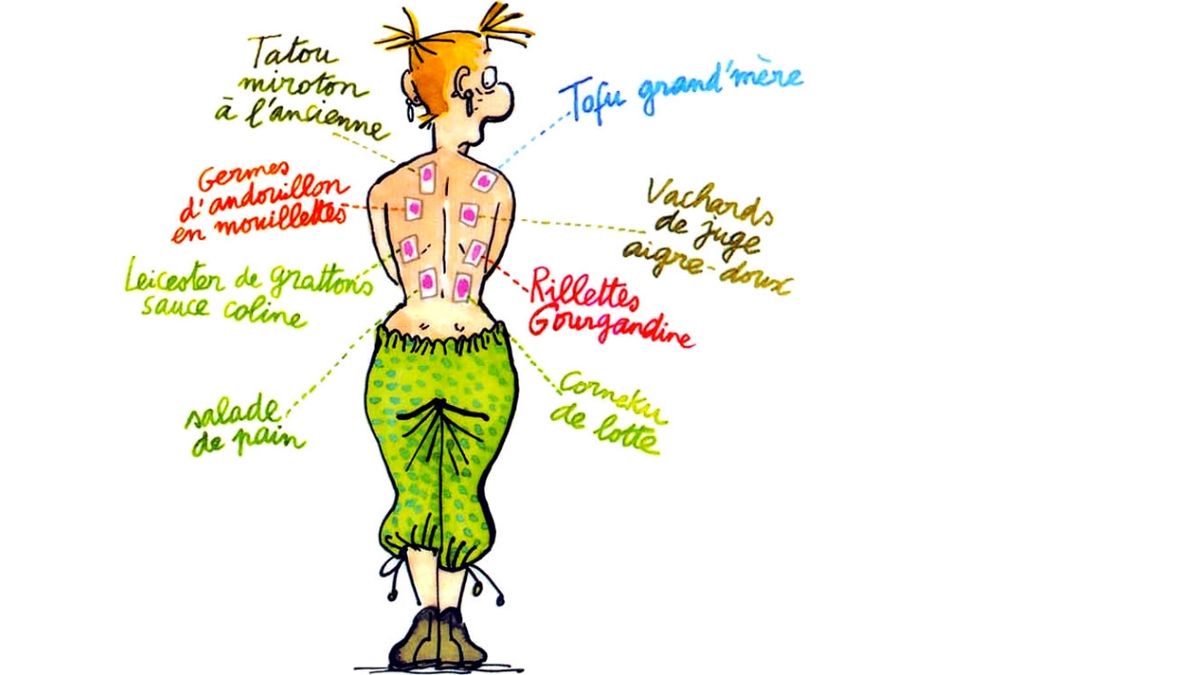 Tatou
miroton
à l'ancienne
Tofu grand'mère
Germes
d'andouillon
en mouillettes
Vachards
de juge
aigre-doux
Leicester de grattons
sauce coline
Rillettes
Gourgandine
salade
de pain
Corneku
de lotte